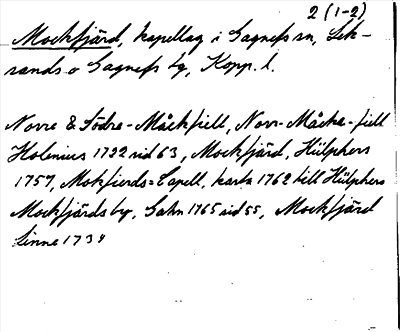 2 (1-2)
Mockfjärd, kapellag i Gagnefs sn, Lek-
sands o Gagnefs tg, Kopp. l.
Norre & Södre-Måckfiell, Norr-Måcka-fiell
Holenius 1722 sid 63, Mockfjärd, Hülphers
1757, Mokfierds=Capell, karta 1762 till Hülphers
Mockfjärds by, Sahn 1765 sid 55, Mockfjärd
Linné 1734